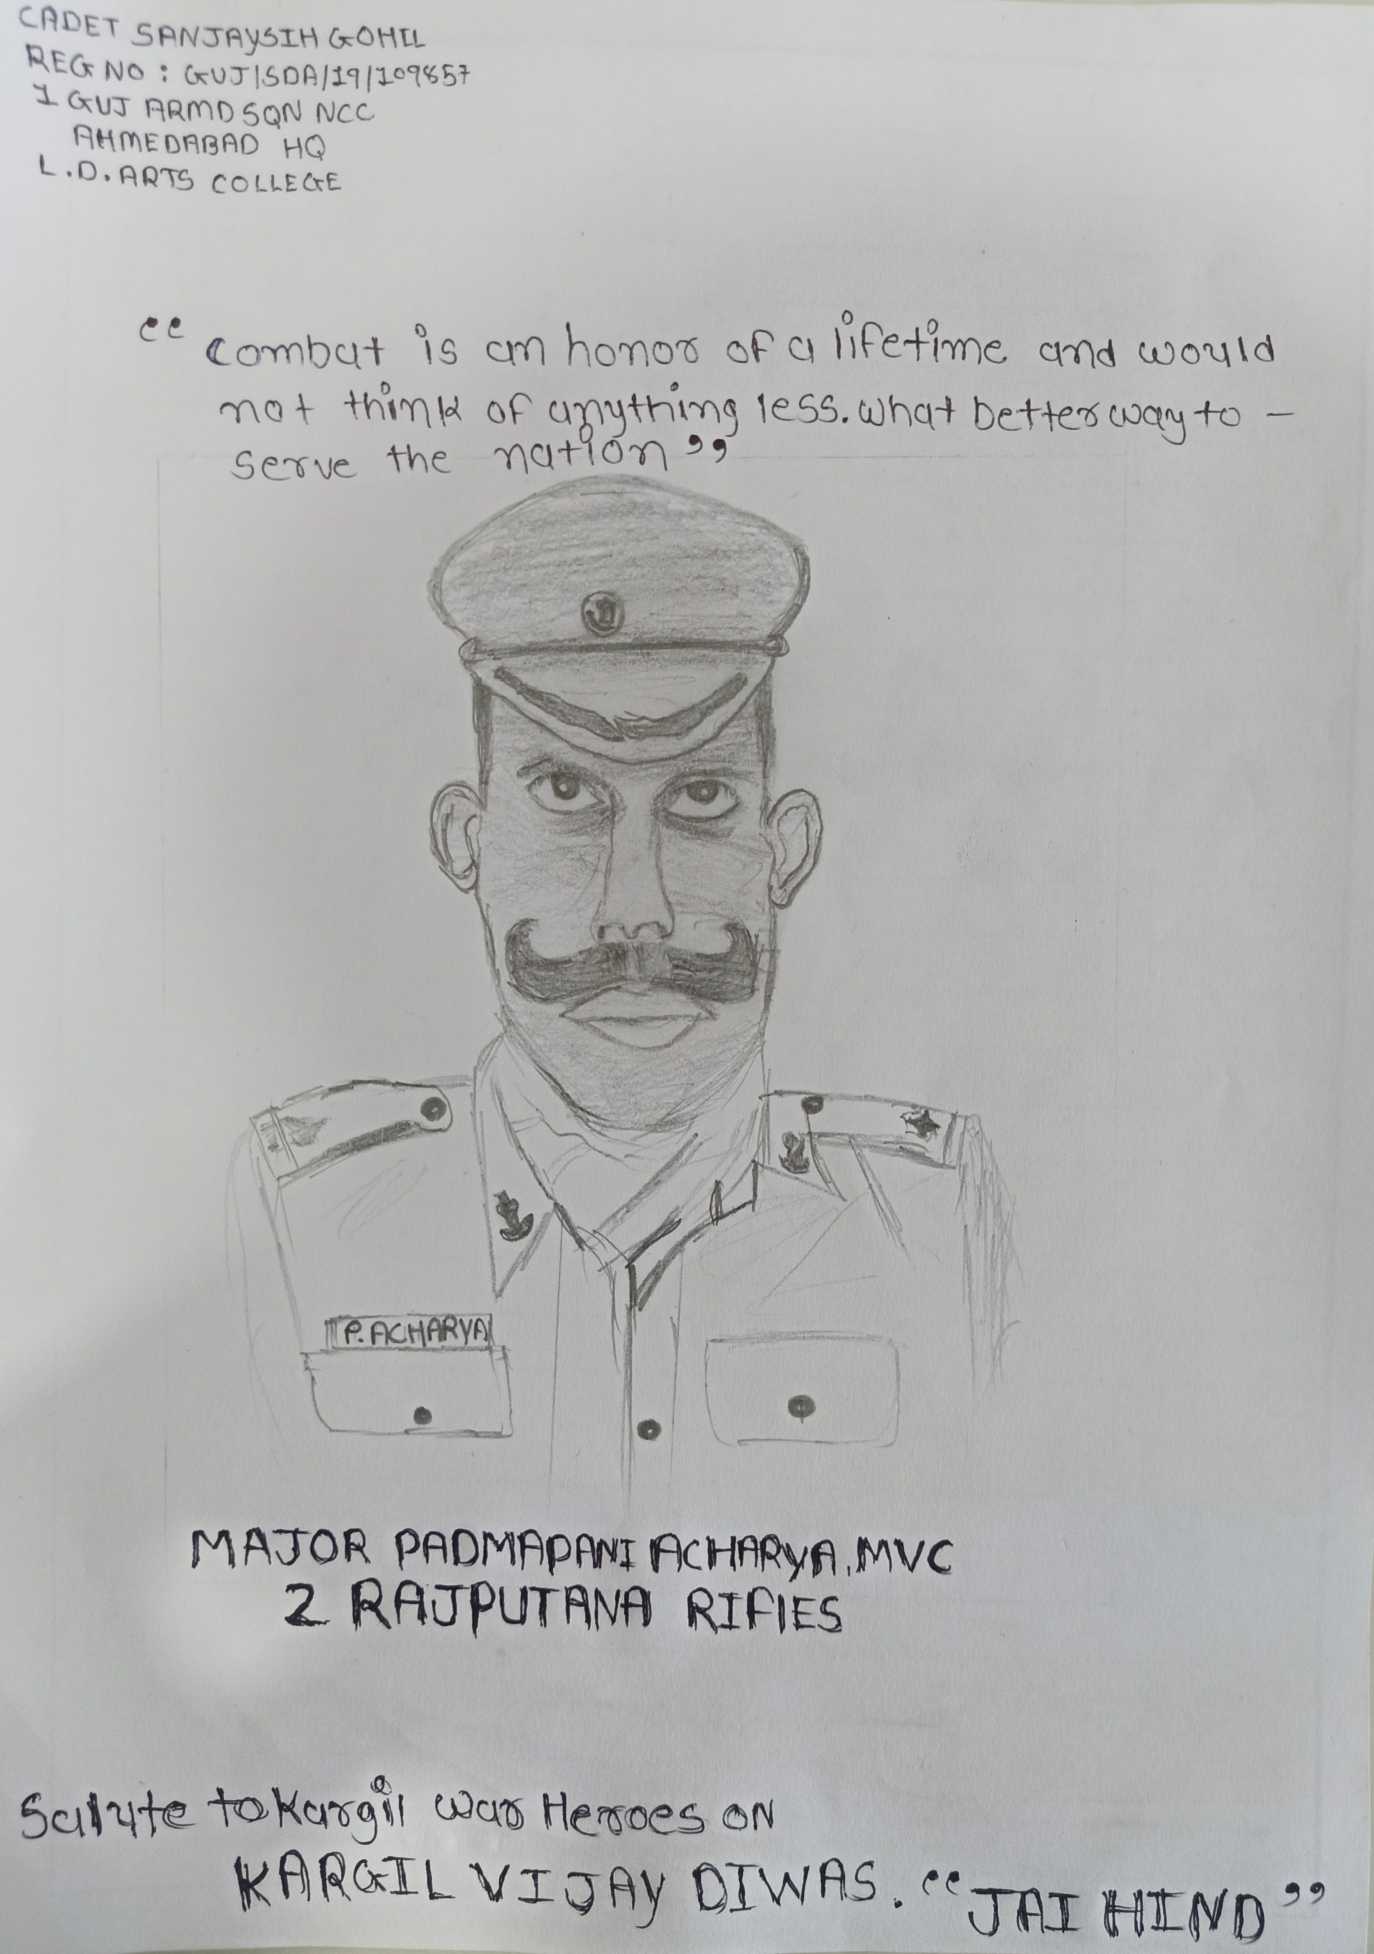 CADET SANJAYSIH GOHIL
REG NO : GUJ/SDA/19/109857
1 GUJ ARMD SQN NCC
AHMEDABAD HQ
L.D. ARTS COLLEGE
“ combat is an honor of a lifetime and would
not think of anything less. what better way to -
serve the nation ”
P. ACHARYA
MAJOR PADMAPANI ACHARYA, MVC
2 RAJPUTANA RIFIES
Salute to Kargil war Heroes ON
KARGIL VIJAY DIWAS. “JAI HIND”